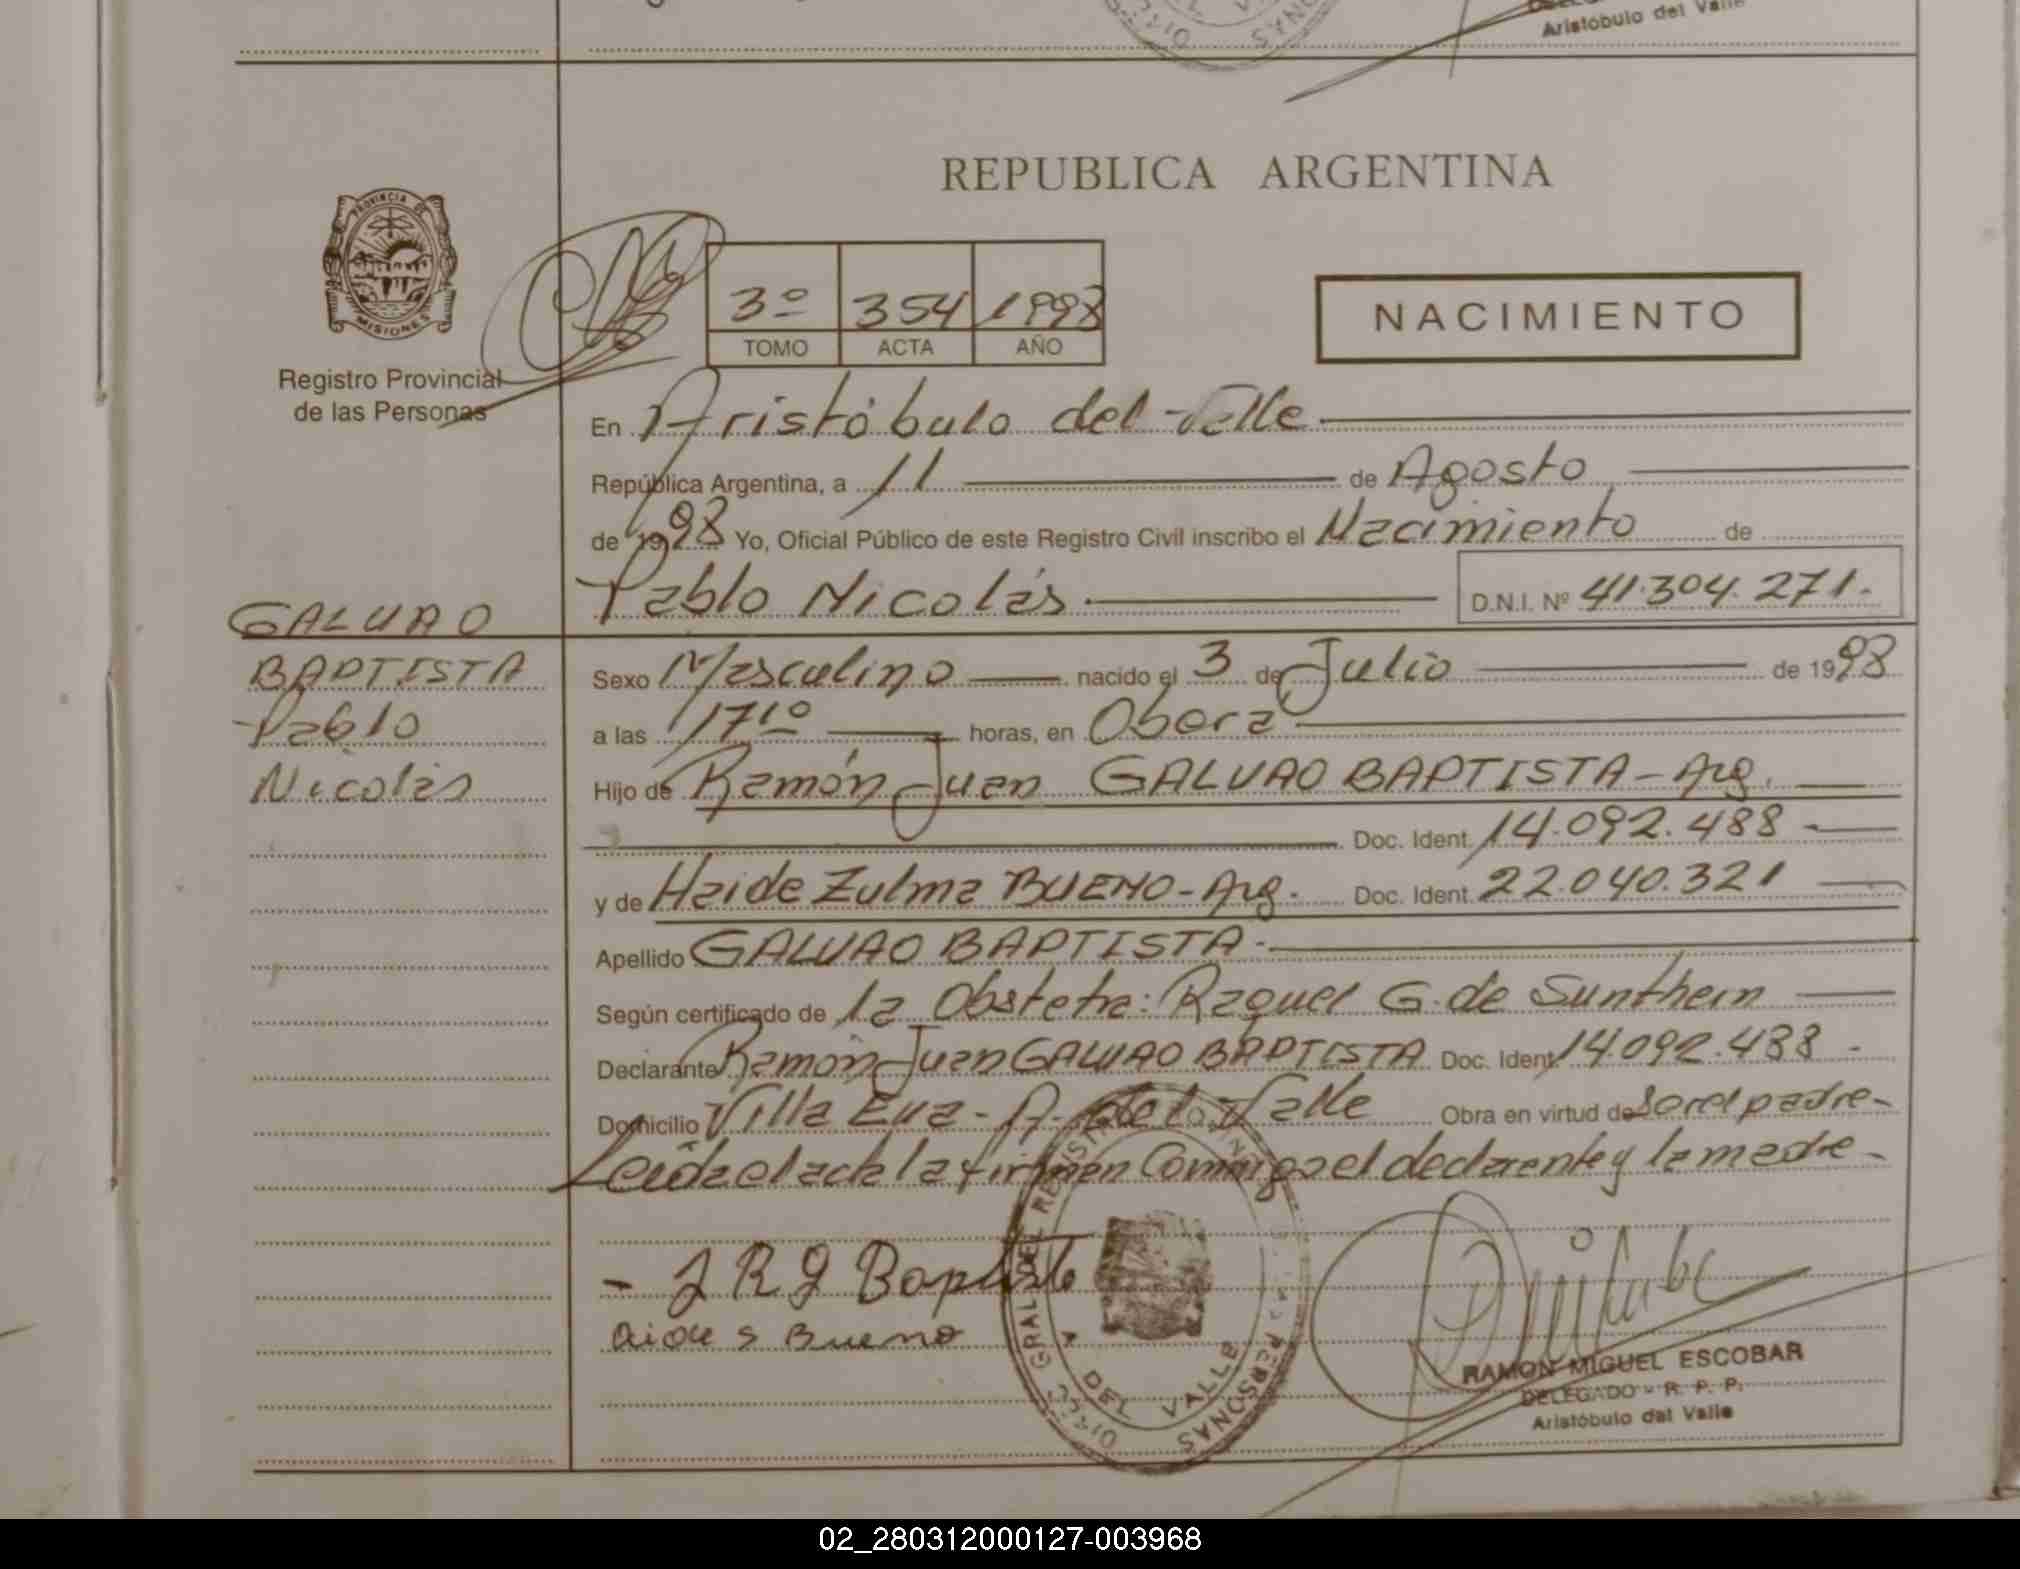 Aristóbulo del Valle
REPUBLICA ARGENTINA
PROVINCIA DE
MISIONES
Registro Provincial
de las Personas
3º 354 1998
TOMO ACTA AÑO
NACIMIENTO
En Aristóbulo del Valle
República Argentina, a 11 de Agosto
de 1998 Yo, Oficial Público de este Registro Civil inscribo el Nacimiento de
Pablo Nicolás D.N.I. Nº 41.304.271.
GALVAO
BAPTISTA
Pablo
Nicolás
Sexo Masculino nacido el 3 de Julio de 1998
a las 17 10 horas, en Oberá
Hijo de Ramón Juan GALVAO BAPTISTA - Arg.
Doc. Ident. 14.092.488 -
y de Haide Zulma BUENO - Arg. Doc. Ident. 22.040.321
Apellido GALVAO BAPTISTA.
Según certificado de la Obstetra: Raquel G. de Sunthein
Declarante Ramón Juan GALVAO BAPTISTA Doc. Ident. 14.092.488 -
Domicilio Villa Eva - A. del Valle Obra en virtud de ser el padre -
Leída el acta la firman Conmigo el declarante y la madre -
- J R G Baptista
Bueno
DEL VALLE
PERSONAS
RAMON MIGUEL ESCOBAR
DELEGADO - R. P. P.
Aristóbulo del Valle
02_280312000127-003968